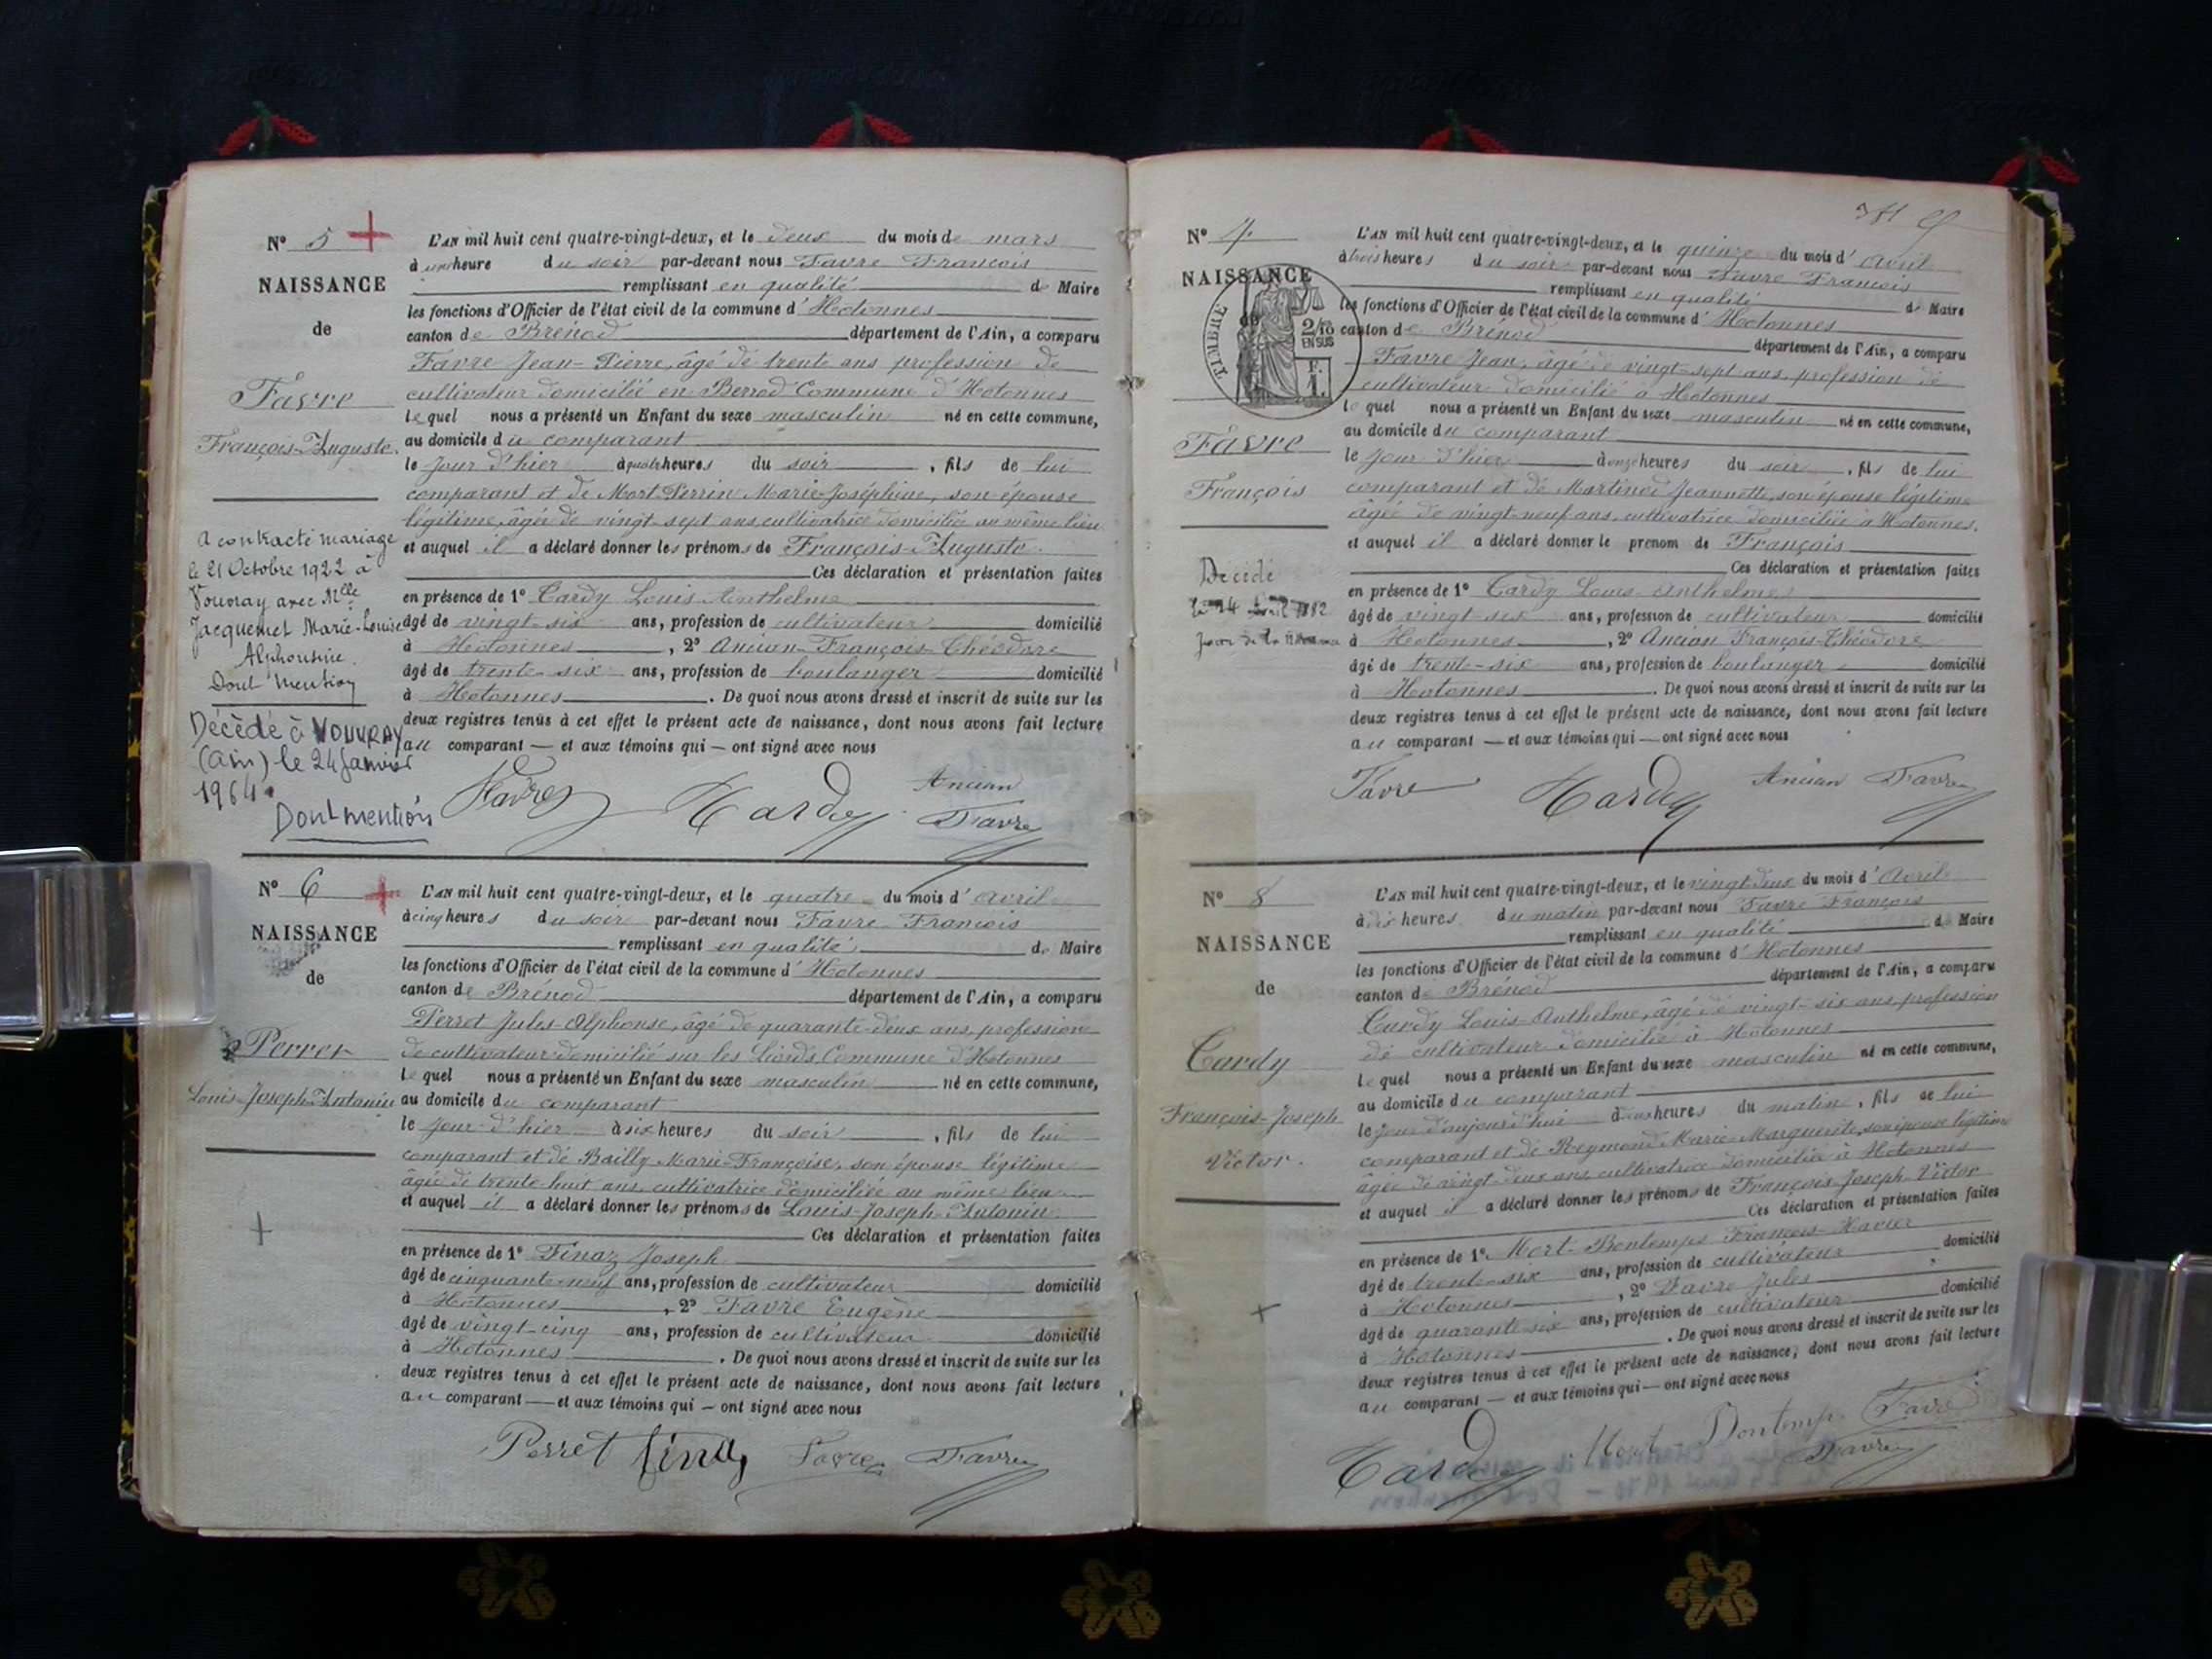 N° 5
NAISSANCE
de
Favre
François-Auguste.
A contracté mariage
le 21 Octobre 1922 à
Vouvray avec Mlle
Jacquemet Marie-Louise
Alphonsine.
Dont mention
Décédé à VOUVRAY
(Ain) le 24 Janvier
1964.
Dont mention
L'AN mil huit cent quatre-vingt-deux, et le deux du mois de mars
à une heure du soir par-devant nous Favre François
remplissant en qualité de Maire
les fonctions d'Officier de l'état civil de la commune d'Hotonnes
canton de Brénod département de l'Ain, a comparu
Favre Jean-Pierre, âgé de trente ans profession de
cultivateur domicilié en Berrod Commune d'Hotonnes
lequel nous a présenté un Enfant du sexe masculin né en cette commune,
au domicile du comparant
le jour d'hier à quatre heures du soir, fils de lui
comparant et de Mort Perrin Marie-Joséphine, son épouse
légitime, âgée de vingt-sept ans cultivatrice domiciliée au même lieu
et auquel il a déclaré donner les prénoms de François-Auguste.
Ces déclaration et présentation faites
en présence de 1° Cardy Louis Anthelme
âgé de vingt-six ans, profession de cultivateur domicilié
à Hotonnes, 2° Ancian François-Théodore
âgé de trente-six ans, profession de boulanger domicilié
à Hotonnes. De quoi nous avons dressé et inscrit de suite sur les
deux registres tenus à cet effet le présent acte de naissance, dont nous avons fait lecture
au comparant — et aux témoins qui — ont signé avec nous
Favre Cardy Ancian
Favre
N° 6
NAISSANCE
de
Perret
Louis-Joseph-Antonin
L'AN mil huit cent quatre-vingt-deux, et le quatre du mois d'avril
à cinq heures du soir par-devant nous Favre François
remplissant en qualité de Maire
les fonctions d'Officier de l'état civil de la commune d'Hotonnes
canton de Brénod département de l'Ain, a comparu
Perret Jules-Alphonse, âgé de quarante-deux ans, profession
de cultivateur domicilié sur les Commune d'Hotonnes
lequel nous a présenté un Enfant du sexe masculin né en cette commune,
au domicile du comparant
le jour d'hier à six heures du soir, fils de lui
comparant et de Bailly Marie-Françoise, son épouse légitime
âgée de trente-huit ans, cultivatrice domiciliée au même lieu
et auquel il a déclaré donner les prénoms de Louis-Joseph-Antonin
Ces déclaration et présentation faites
en présence de 1° Finaz Joseph
âgé de cinquante-neuf ans, profession de cultivateur domicilié
à Hotonnes, 2° Favre Eugène
âgé de vingt-cinq ans, profession de cultivateur domicilié
à Hotonnes. De quoi nous avons dressé et inscrit de suite sur les
deux registres tenus à cet effet le présent acte de naissance, dont nous avons fait lecture
au comparant — et aux témoins qui — ont signé avec nous
Perret Finaz Favre Favre
N° 7
NAISSANCE
de
TIMBRE
2/10
EN SUS
Favre
François
Décédé
L'AN mil huit cent quatre-vingt-deux, et le quinze du mois d'avril
à trois heures du soir par-devant nous Favre François
remplissant en qualité de Maire
les fonctions d'Officier de l'état civil de la commune d'Hotonnes
canton de Brénod département de l'Ain, a comparu
Favre Jean, âgé de vingt-sept ans, profession de
cultivateur domicilié à Hotonnes
lequel nous a présenté un Enfant du sexe masculin né en cette commune,
au domicile du comparant
le jour d'hier à onze heures du soir, fils de lui
comparant et de Martinod Jeannette, son épouse légitime
âgée de vingt-neuf ans, cultivatrice domiciliée à Hotonnes.
et auquel il a déclaré donner le prénom de François
Ces déclaration et présentation faites
en présence de 1° Cardy Louis-Anthelme
âgé de vingt-six ans, profession de cultivateur domicilié
à Hotonnes, 2° Ancian François-Théodore
âgé de trente-six ans, profession de boulanger domicilié
à Hotonnes. De quoi nous avons dressé et inscrit de suite sur les
deux registres tenus à cet effet le présent acte de naissance, dont nous avons fait lecture
au comparant — et aux témoins qui — ont signé avec nous
Favre Cardy Ancian Favre
N° 8
NAISSANCE
de
Cardy
François-Joseph
Victor.
L'AN mil huit cent quatre-vingt-deux, et le vingt-deux du mois d'avril
à dix heures du matin par-devant nous Favre François
remplissant en qualité de Maire
les fonctions d'Officier de l'état civil de la commune d'Hotonnes
canton de Brénod département de l'Ain, a comparu
Cardy Louis-Anthelme, âgé de vingt-six ans profession
de cultivateur domicilié à Hotonnes
lequel nous a présenté un Enfant du sexe masculin né en cette commune,
au domicile du comparant
le jour d'aujourd'hui à heures du matin, fils de lui
comparant et de Reymond Marie-Marguerite, son épouse légitime
âgée de vingt-deux ans, cultivatrice domiciliée à Hotonnes
et auquel il a déclaré donner les prénoms de François-Joseph-Victor
Ces déclaration et présentation faites
en présence de 1° Mort-Bontemps François-Xavier
âgé de trente-six ans, profession de cultivateur domicilié
à Hotonnes, 2° Favre Jules
âgé de quarante-six ans, profession de cultivateur domicilié
à Hotonnes. De quoi nous avons dressé et inscrit de suite sur les
deux registres tenus à cet effet le présent acte de naissance, dont nous avons fait lecture
au comparant — et aux témoins qui — ont signé avec nous
Cardy Mort Bontemps Favre
Favre